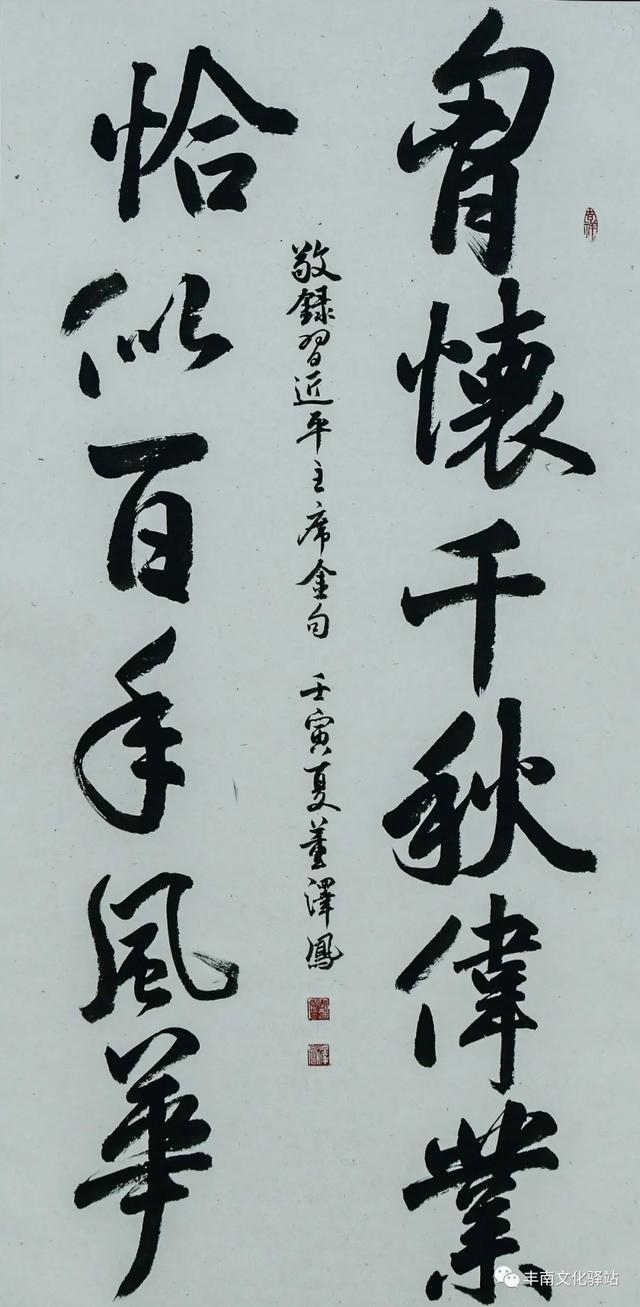 胷懷千秋偉業
恰似百年風華
敬録習近平主席金句 壬寅夏董澤鳳
丰南文化驿站